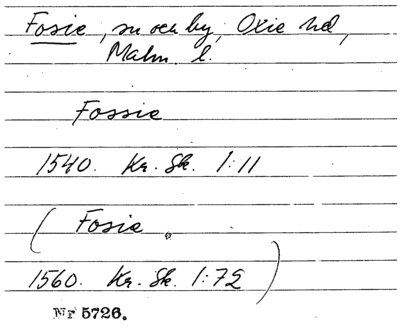 Fosie, sn och by, Oxie hd,
Malm. l.
Fossie
1540. Kr. Sk. 1:11
(Fosie
1560. Kr. Sk. 1:72)
Nr 5726.